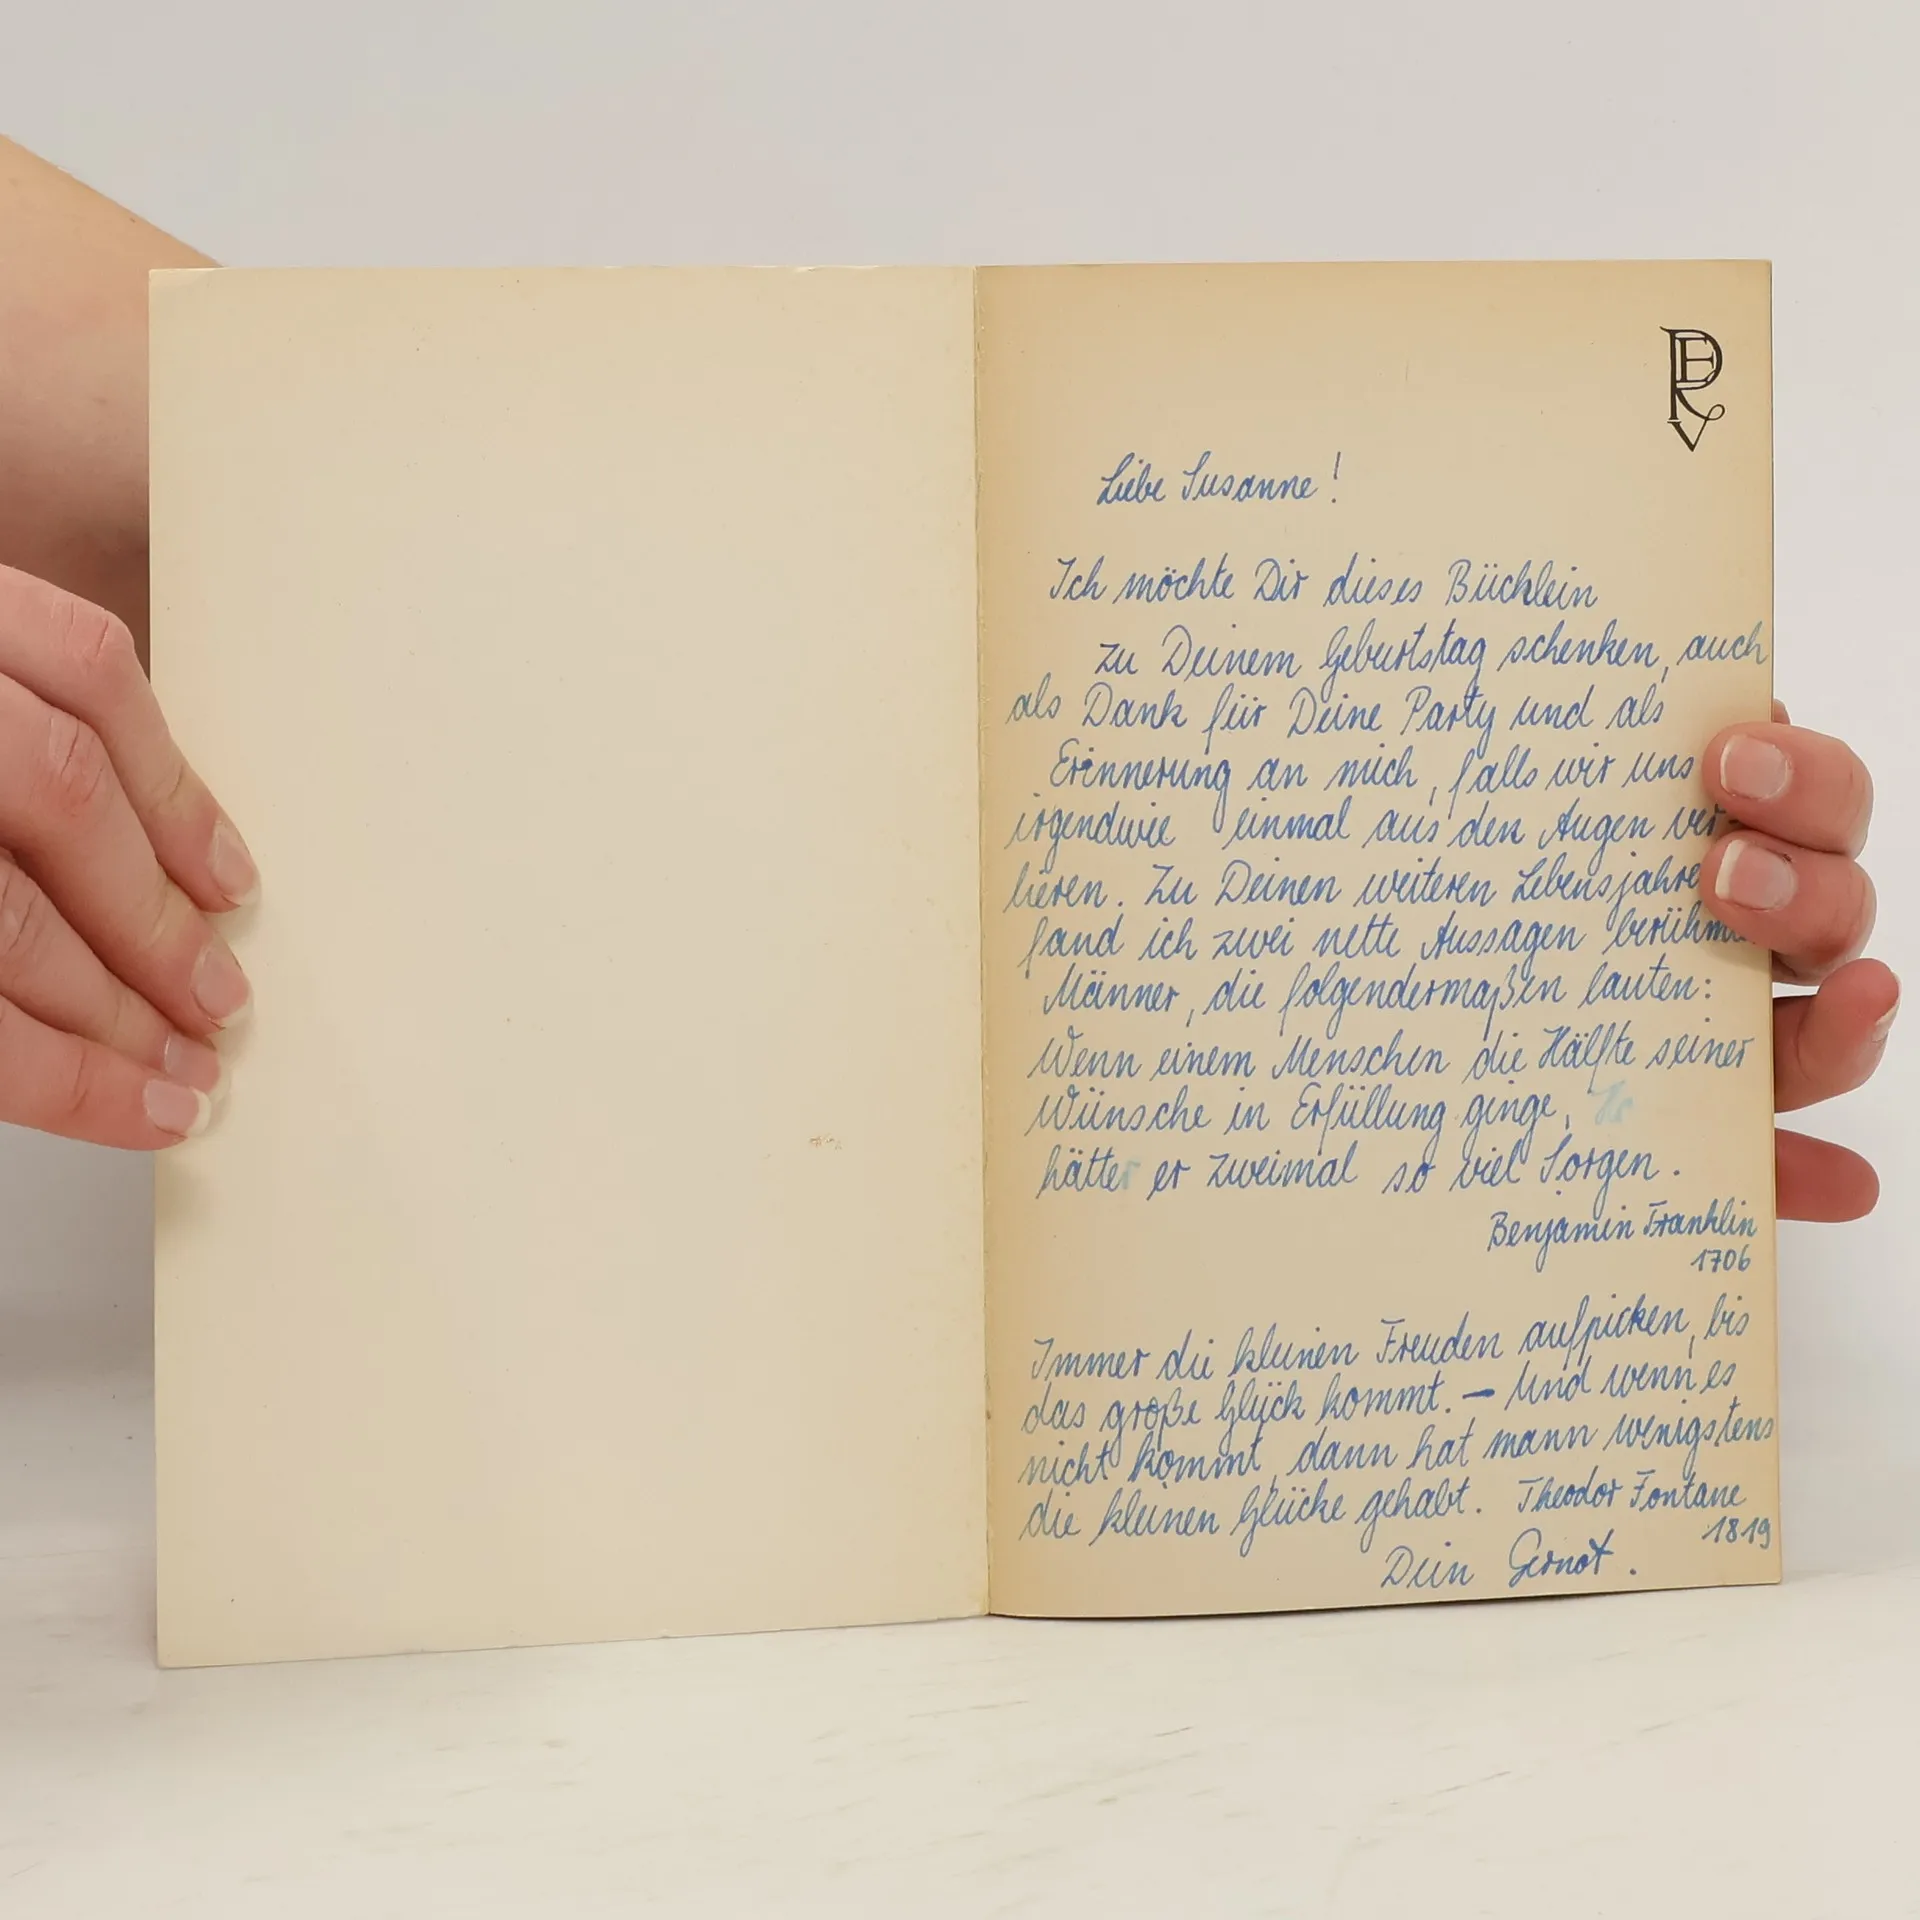 PERV
Liebe Susanne!
Ich möchte Dir dieses Bücklein
zu Deinem Geburtstag schenken, auch
als Dank für Deine Party und als
Erinnerung an mich, falls wir uns
irgendwie einmal aus den Augen ver-
lieren. Zu Deinen weiteren Lebensjahre
fand ich zwei nette Aussagen berühm
Männer, die folgendermaßen lauten:
Wenn einem Menschen die Hälfte seiner
Wünsche in Erfüllung ginge,
hätte er zweimal so viel Sorgen.
Benjamin Franklin
1706
Immer die kleinen Freuden aufpicken, bis
das große Glück kommt. – Und wenn es
nicht kommt, dann hat mann wenigstens
die kleinen Glücke gehabt. Theodor Fontane
1819
Dein Gernot.